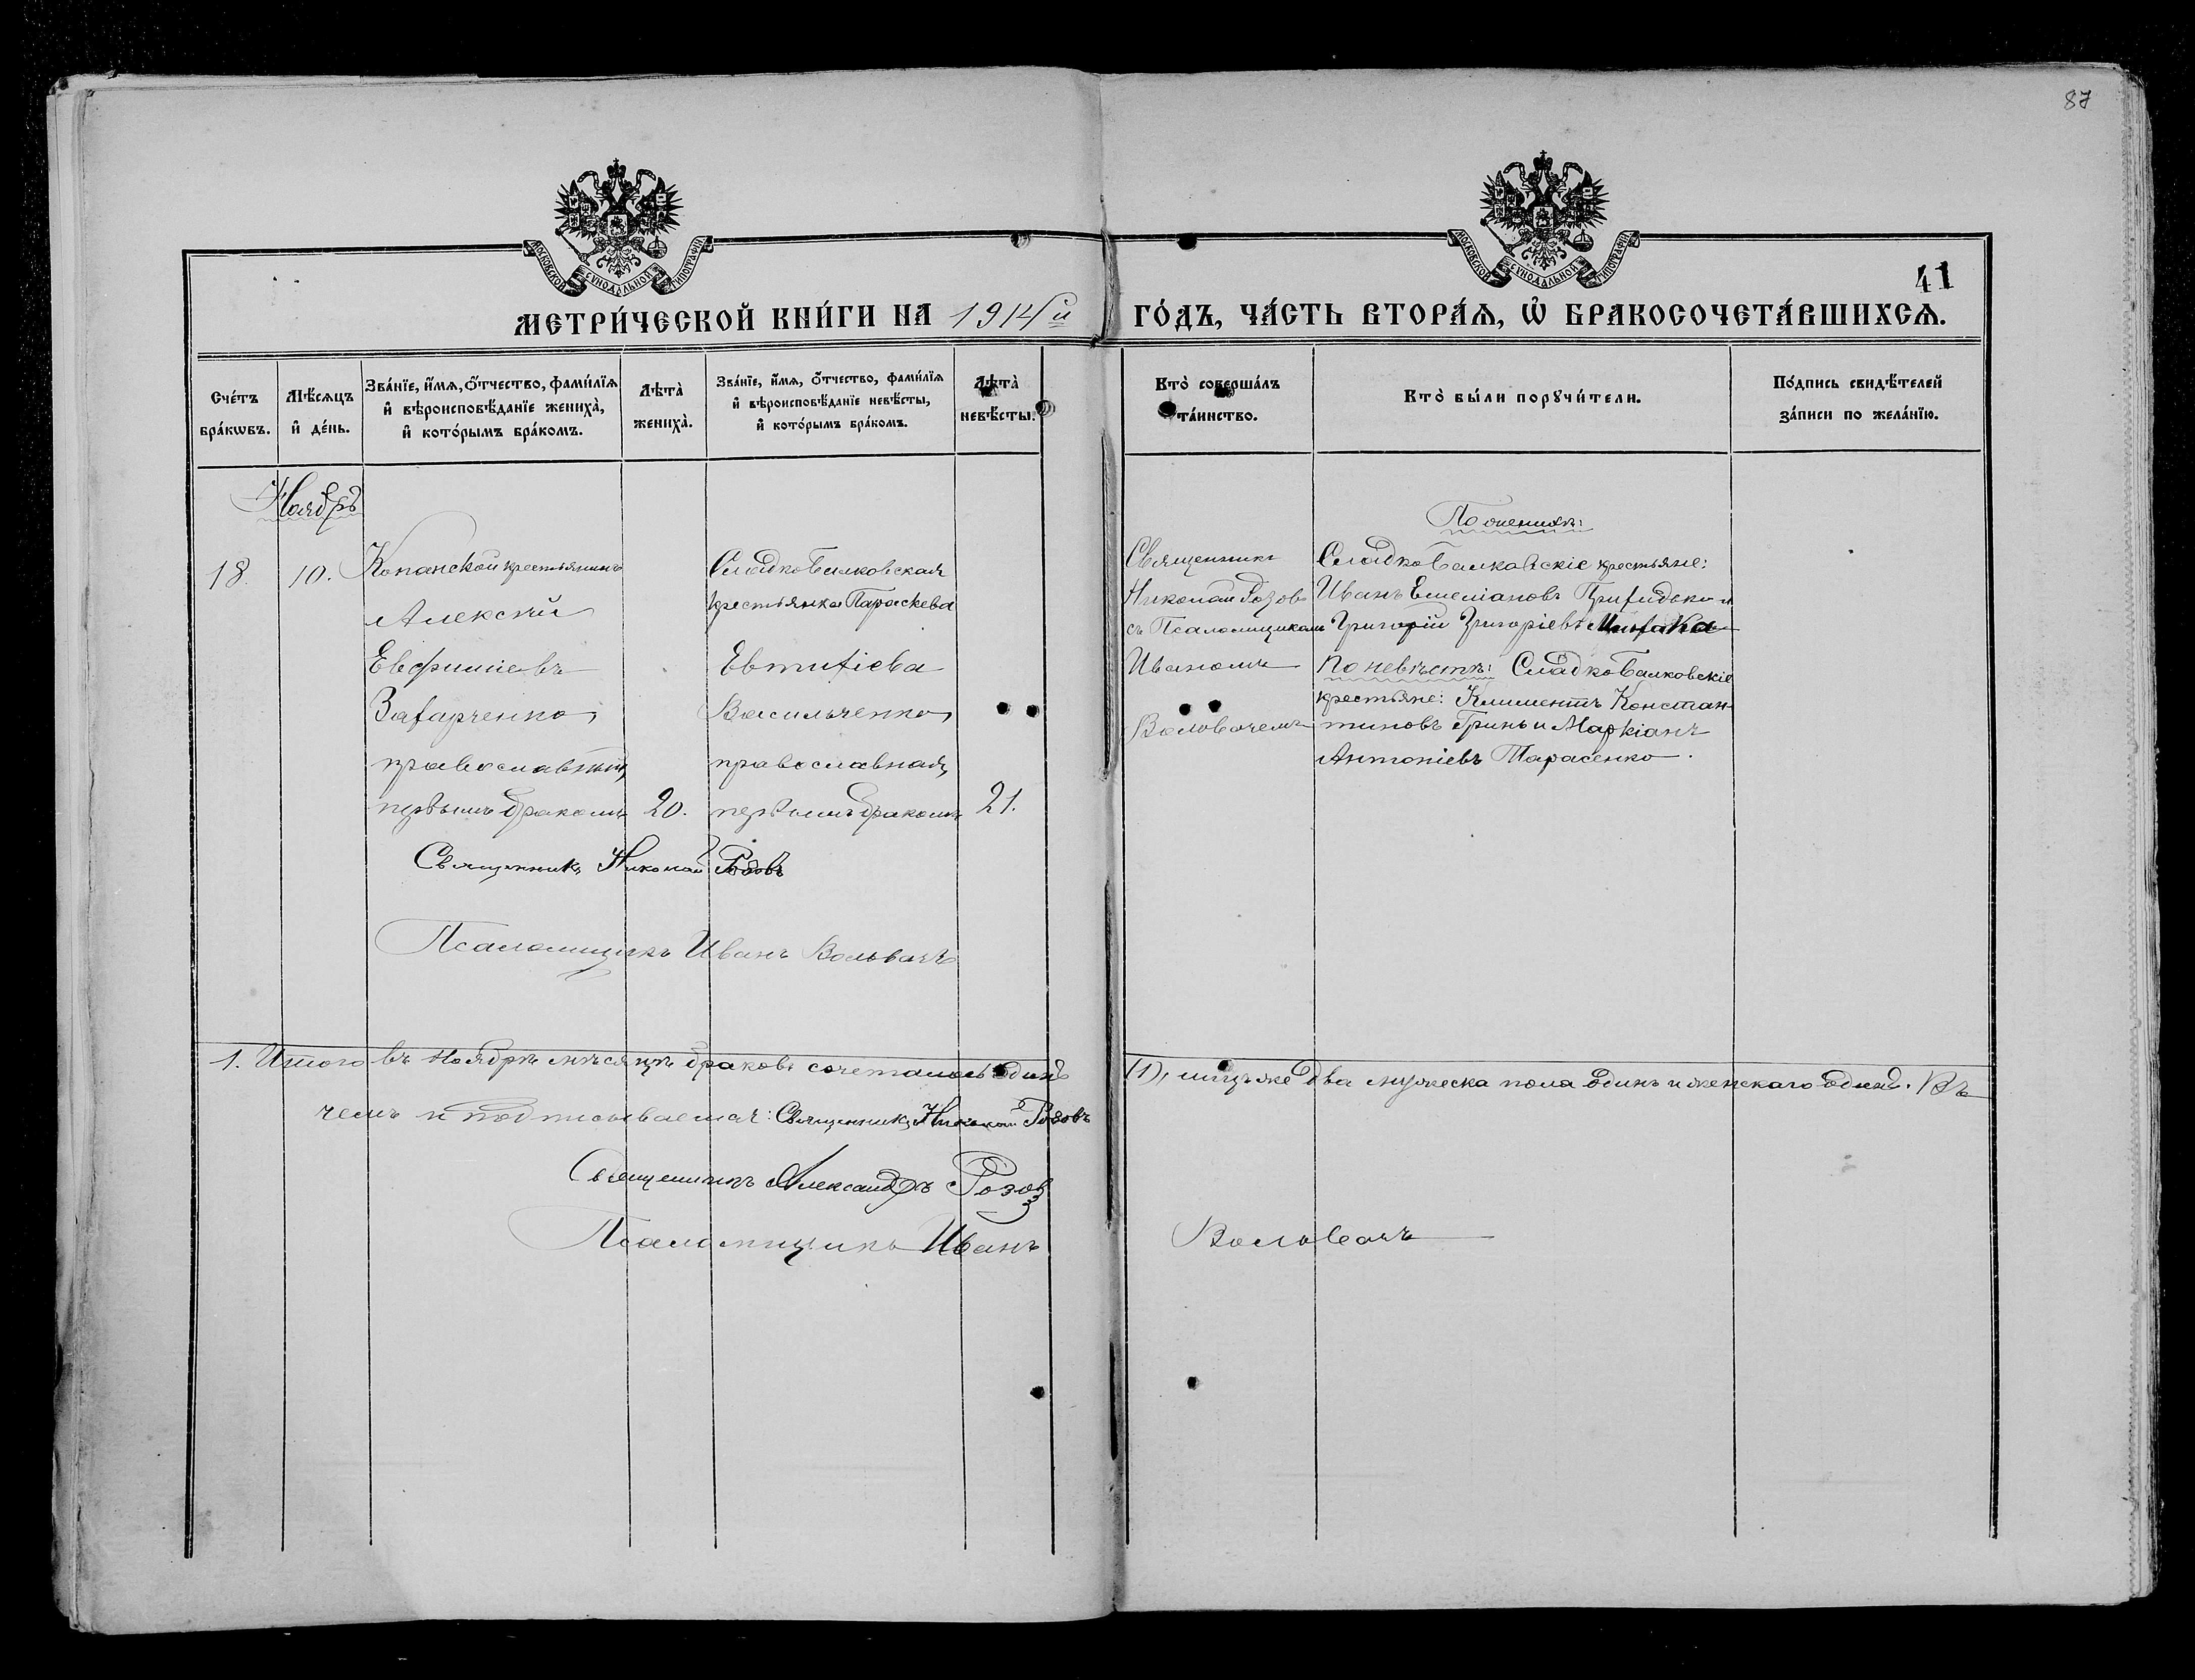 87
МОСКОВСКОЙ СѴНОДАЛЬНОЙ ТИПОГРАФІИ
МОСКОВСКОЙ СѴНОДАЛЬНОЙ ТИПОГРАФІИ
41
МЕТРИ́ЧЕСКОЙ КНИ́ГИ НА 1914й
ГО́ДЪ, ЧА́СТЬ ВТОРА́Ѧ, Ѡ БРАКОСОЧЕТА́ВШИХСѦ.
Сче́тъ
бра́кѡвъ.
Мѣ́сѧцъ
и҆ де́нь.
Зва́нїе, и҆́мѧ, ѻ҆́тчество, фами́лїѧ
и҆ вѣроисповѣ́данїе жениха̀,
и҆ кото́рымъ бра́комъ.
Лѣта̀
жениха̀.
Зва́нїе, и҆́мѧ, ѻ҆́тчество, фами́лїѧ
и҆ вѣроисповѣ́данїе невѣ́сты,
и҆ кото́рымъ бра́комъ.
Лѣта̀
невѣ́сты.
Кто̀ соверша́лъ
та́инство.
Кто̀ бы́ли порꙋчи́тели.
По́дпись свидѣ́телей
за́писи по жела́нїю.
Ноябрь
18.
10.
Копанской крестьянинъ
Алексѣй
Евфиміевъ
Захарченко,
православный,
первымъ бракомъ
20.
Сладкобалковская
крестьянка Параскева
Евтихіева
Васильченко,
православная,
первымъ бракомъ
21.
Священникъ
Николай Розовъ
съ Псаломщикомъ
Иваномъ
Воловачемъ
По женихѣ:
Сладкобалковскіе крестьяне:
Иванъ Емеліановъ и
Григорій Григоріевъ
По невѣстѣ: Сладкобалковскіе
крестьяне: Климентъ Констан-
тиновъ Гринь и Маркіанъ
Антоніевъ Тарасенко.
Священникъ Николай Розовъ
Псаломщикъ Иванъ Воловачъ
1. Итого въ Ноябрѣ мѣсяцѣ браковъ сочеталось одинъ
(1), лицъ же два мужеска пола одинъ и женскаго одинъ. Въ
чемъ и подписываемся: Священникъ Николай Розовъ
Священникъ Александръ Розовъ
Псаломщикъ Иванъ
Воловачъ